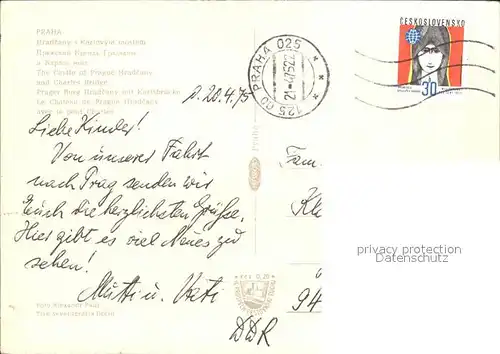 PRAHA
Hradčany s Karlovým mostem
Пражский Кремль Градчаны
и Карлов мост
The Castle of Prague Hradčany
and Charles Bridge
Prager Burg Hradčany mit Karlsbrücke
Le Château de Prague Hradčany
avec le pont Charles
PRAHA 025
125 00
ČESKOSLOVENSKO
30
P. 20.4.75
Liebe Kinder!
Von unserer Fahrt
nach Prag senden wir
Euch die herzlichsten Grüße.
Hier gibt es viel Neues zu
sehen!
Mutti u. Vati
Fam.
94
DDR
Foto Alexander Paul
privacy protection